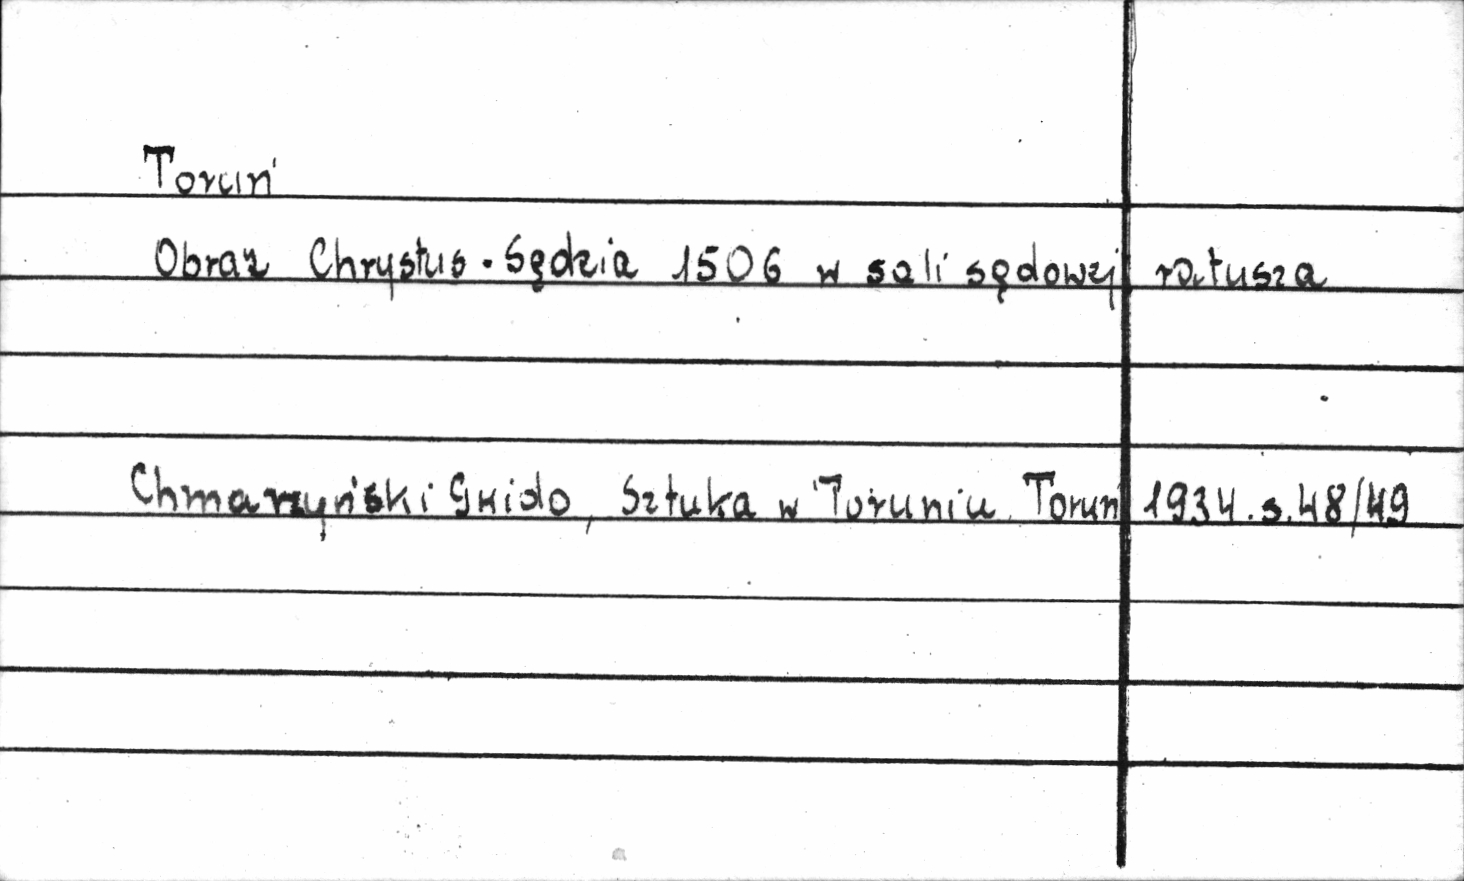 Toruń
Obraz Chrystus - Sędzia 1506 w sali sędowej ratusza
Chmarzyński Gwido, Sztuka w Toruniu. Toruń 1934. s. 48/49